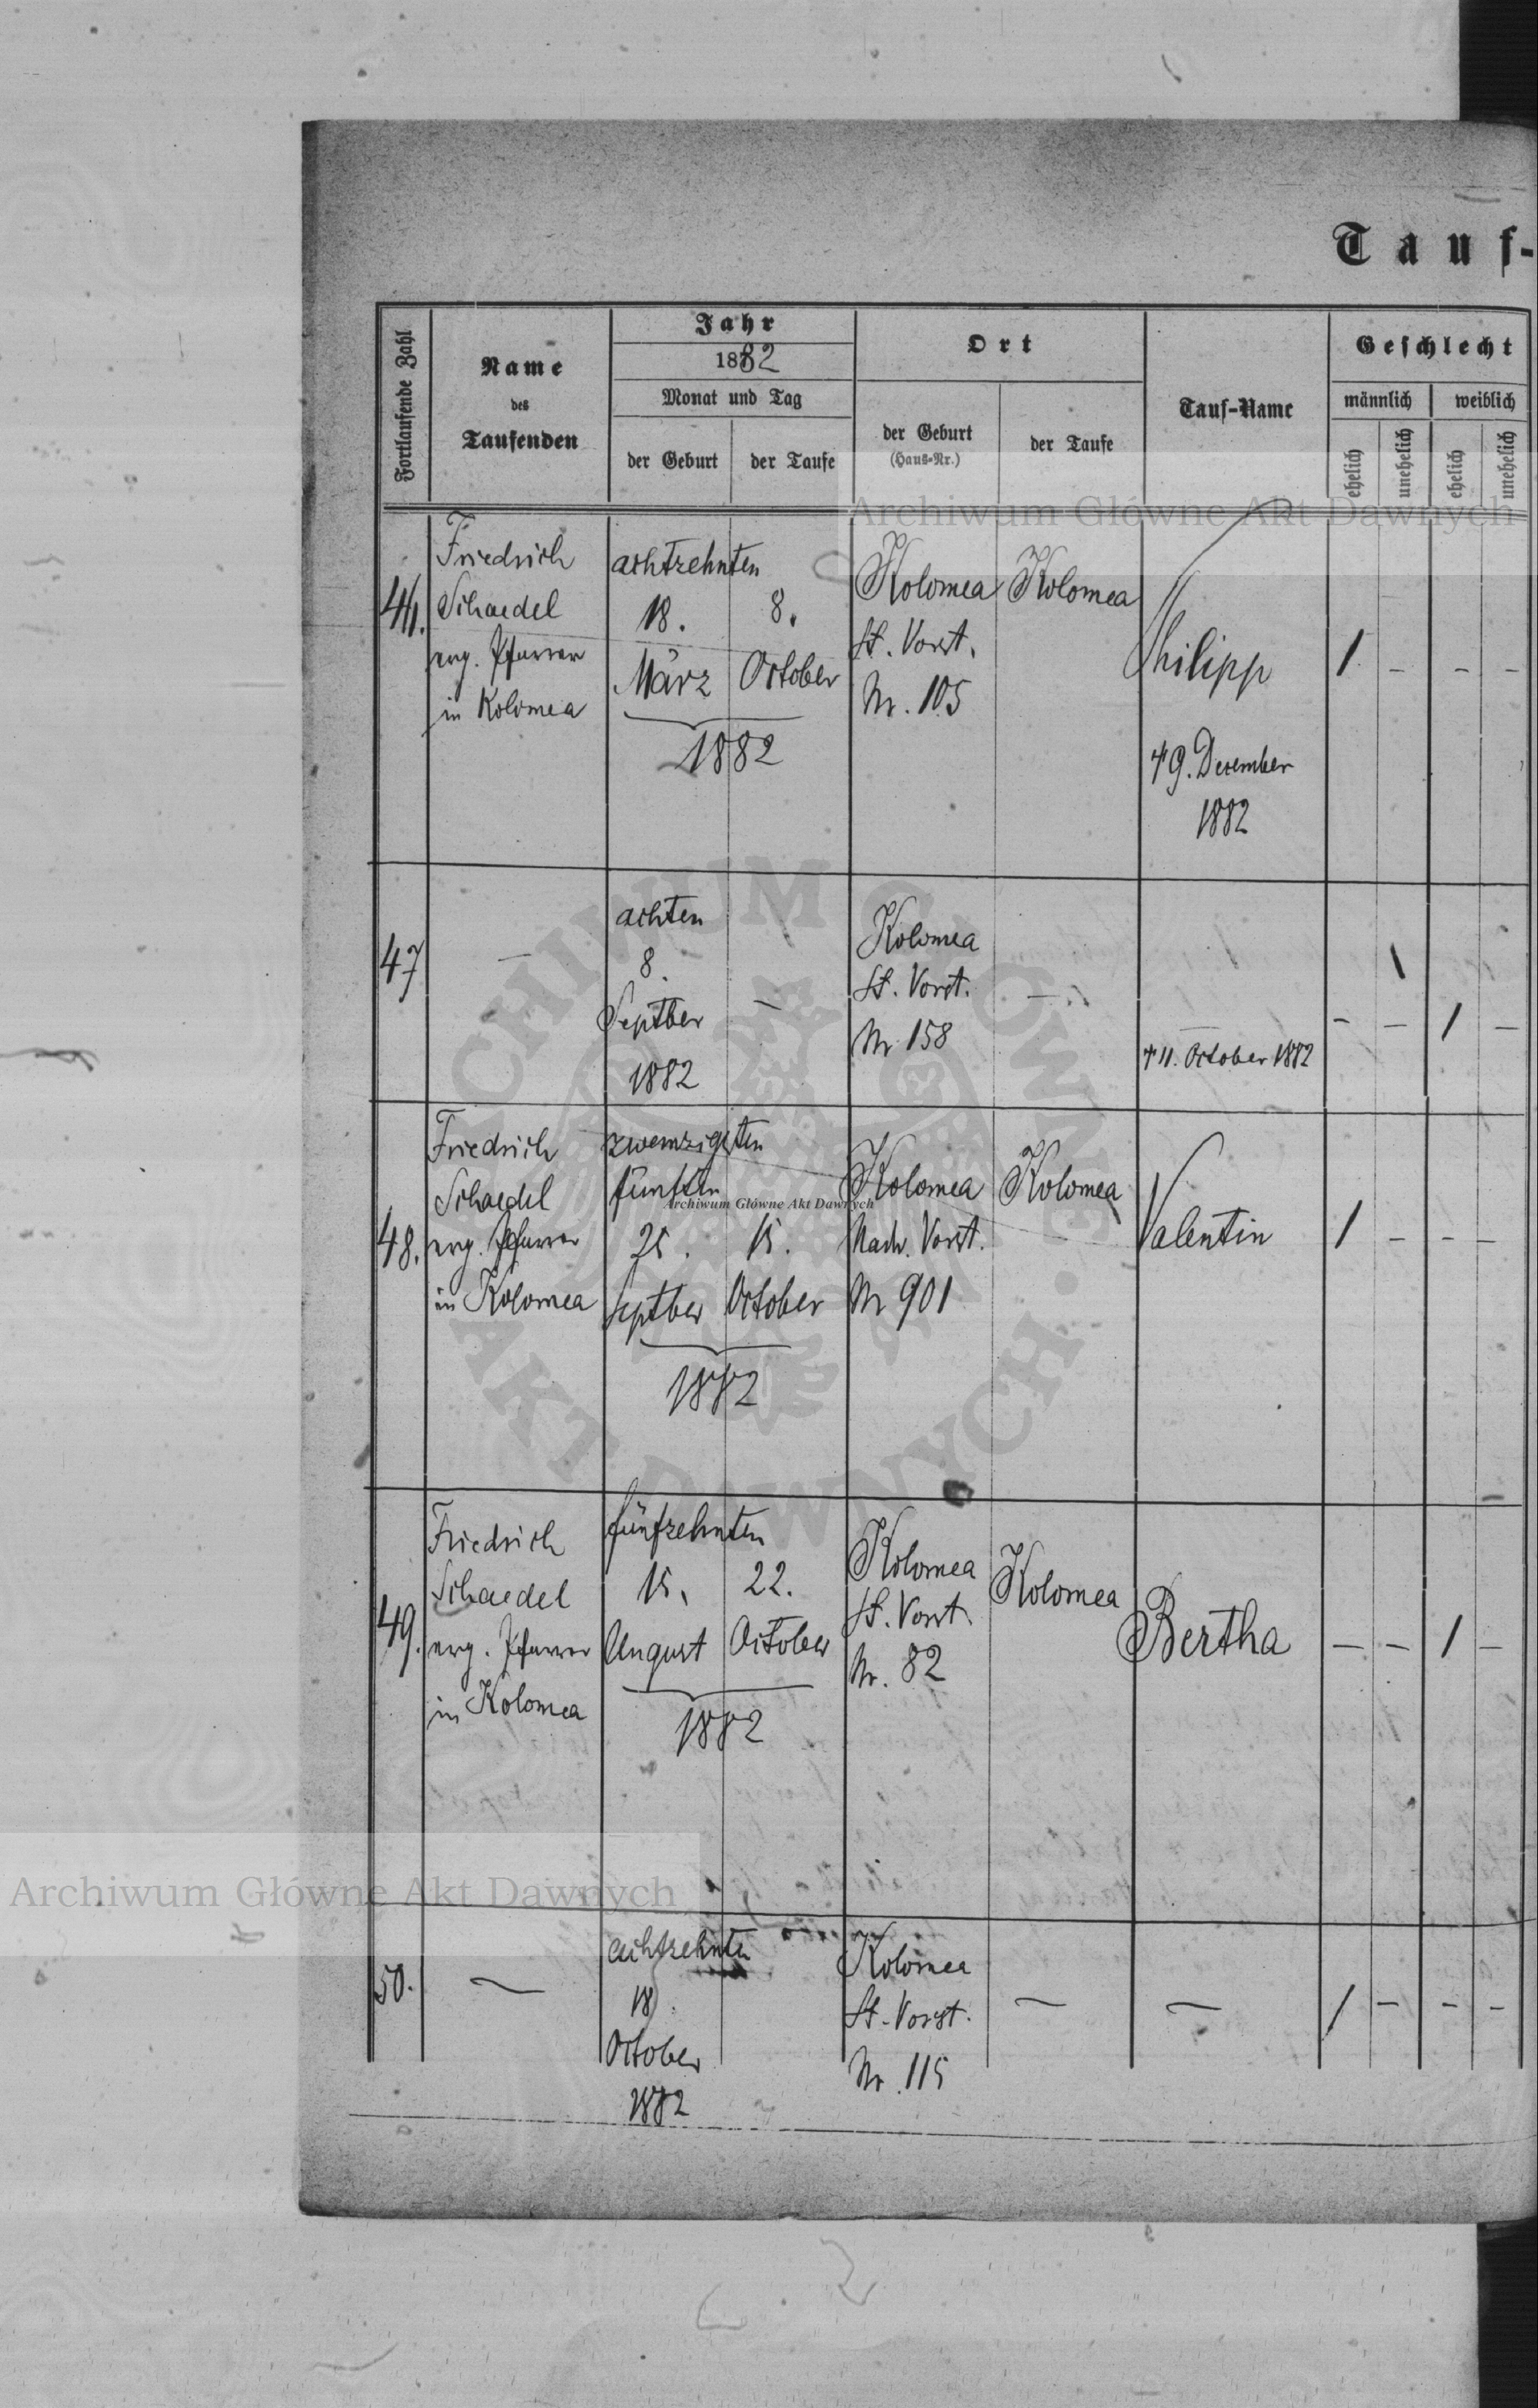 Tauf-
Fortlaufende Zahl
Name
des
Taufenden
Jahr
1882
Monat und Tag
der Geburt
der Taufe
Ort
der Geburt
(Haus-Nr.)
der Taufe
Tauf-Name
Geschlecht
männlich
weiblich
ehelich
unehelich
ehelich
unehelich
Archiwum Główne Akt Dawnych
46.
Friedrich
Schaedel
evg. Pfarrer
in Kolomea
achtzehnten
18. 8.
März October
1882
Kolomea
St. Vorst.
Nr. 105
Kolomea
Philipp
† 9. December
1882
1 – – –
47
—
achten
8.
Septber
1882
—
Kolomea
St. Vorst.
Nr 158
—
—
† 11. October 1882
– – 1 –
48.
Friedrich
Schaedel
evg. Pfarrer
in Kolomea
zwemzigsten
fünften
25. 15.
Septber October
1882
Archiwum Główne Akt Dawnych
Kolomea
Nadw. Vorst.
Nr 901
Kolomea
Valentin
1 – – –
49.
Friedrich
Schaedel
evg. Pfarrer
in Kolomea
fünfzehnten
15. 22.
August October
1882
Kolomea
St. Vorst.
Nr. 82
Kolomea
Bertha
– – 1 –
Archiwum Główne Akt Dawnych
50.
—
achtzehnten
18.
October
1882
Kolomea
St. Vorst.
Nr. 115
—
—
1 – – –